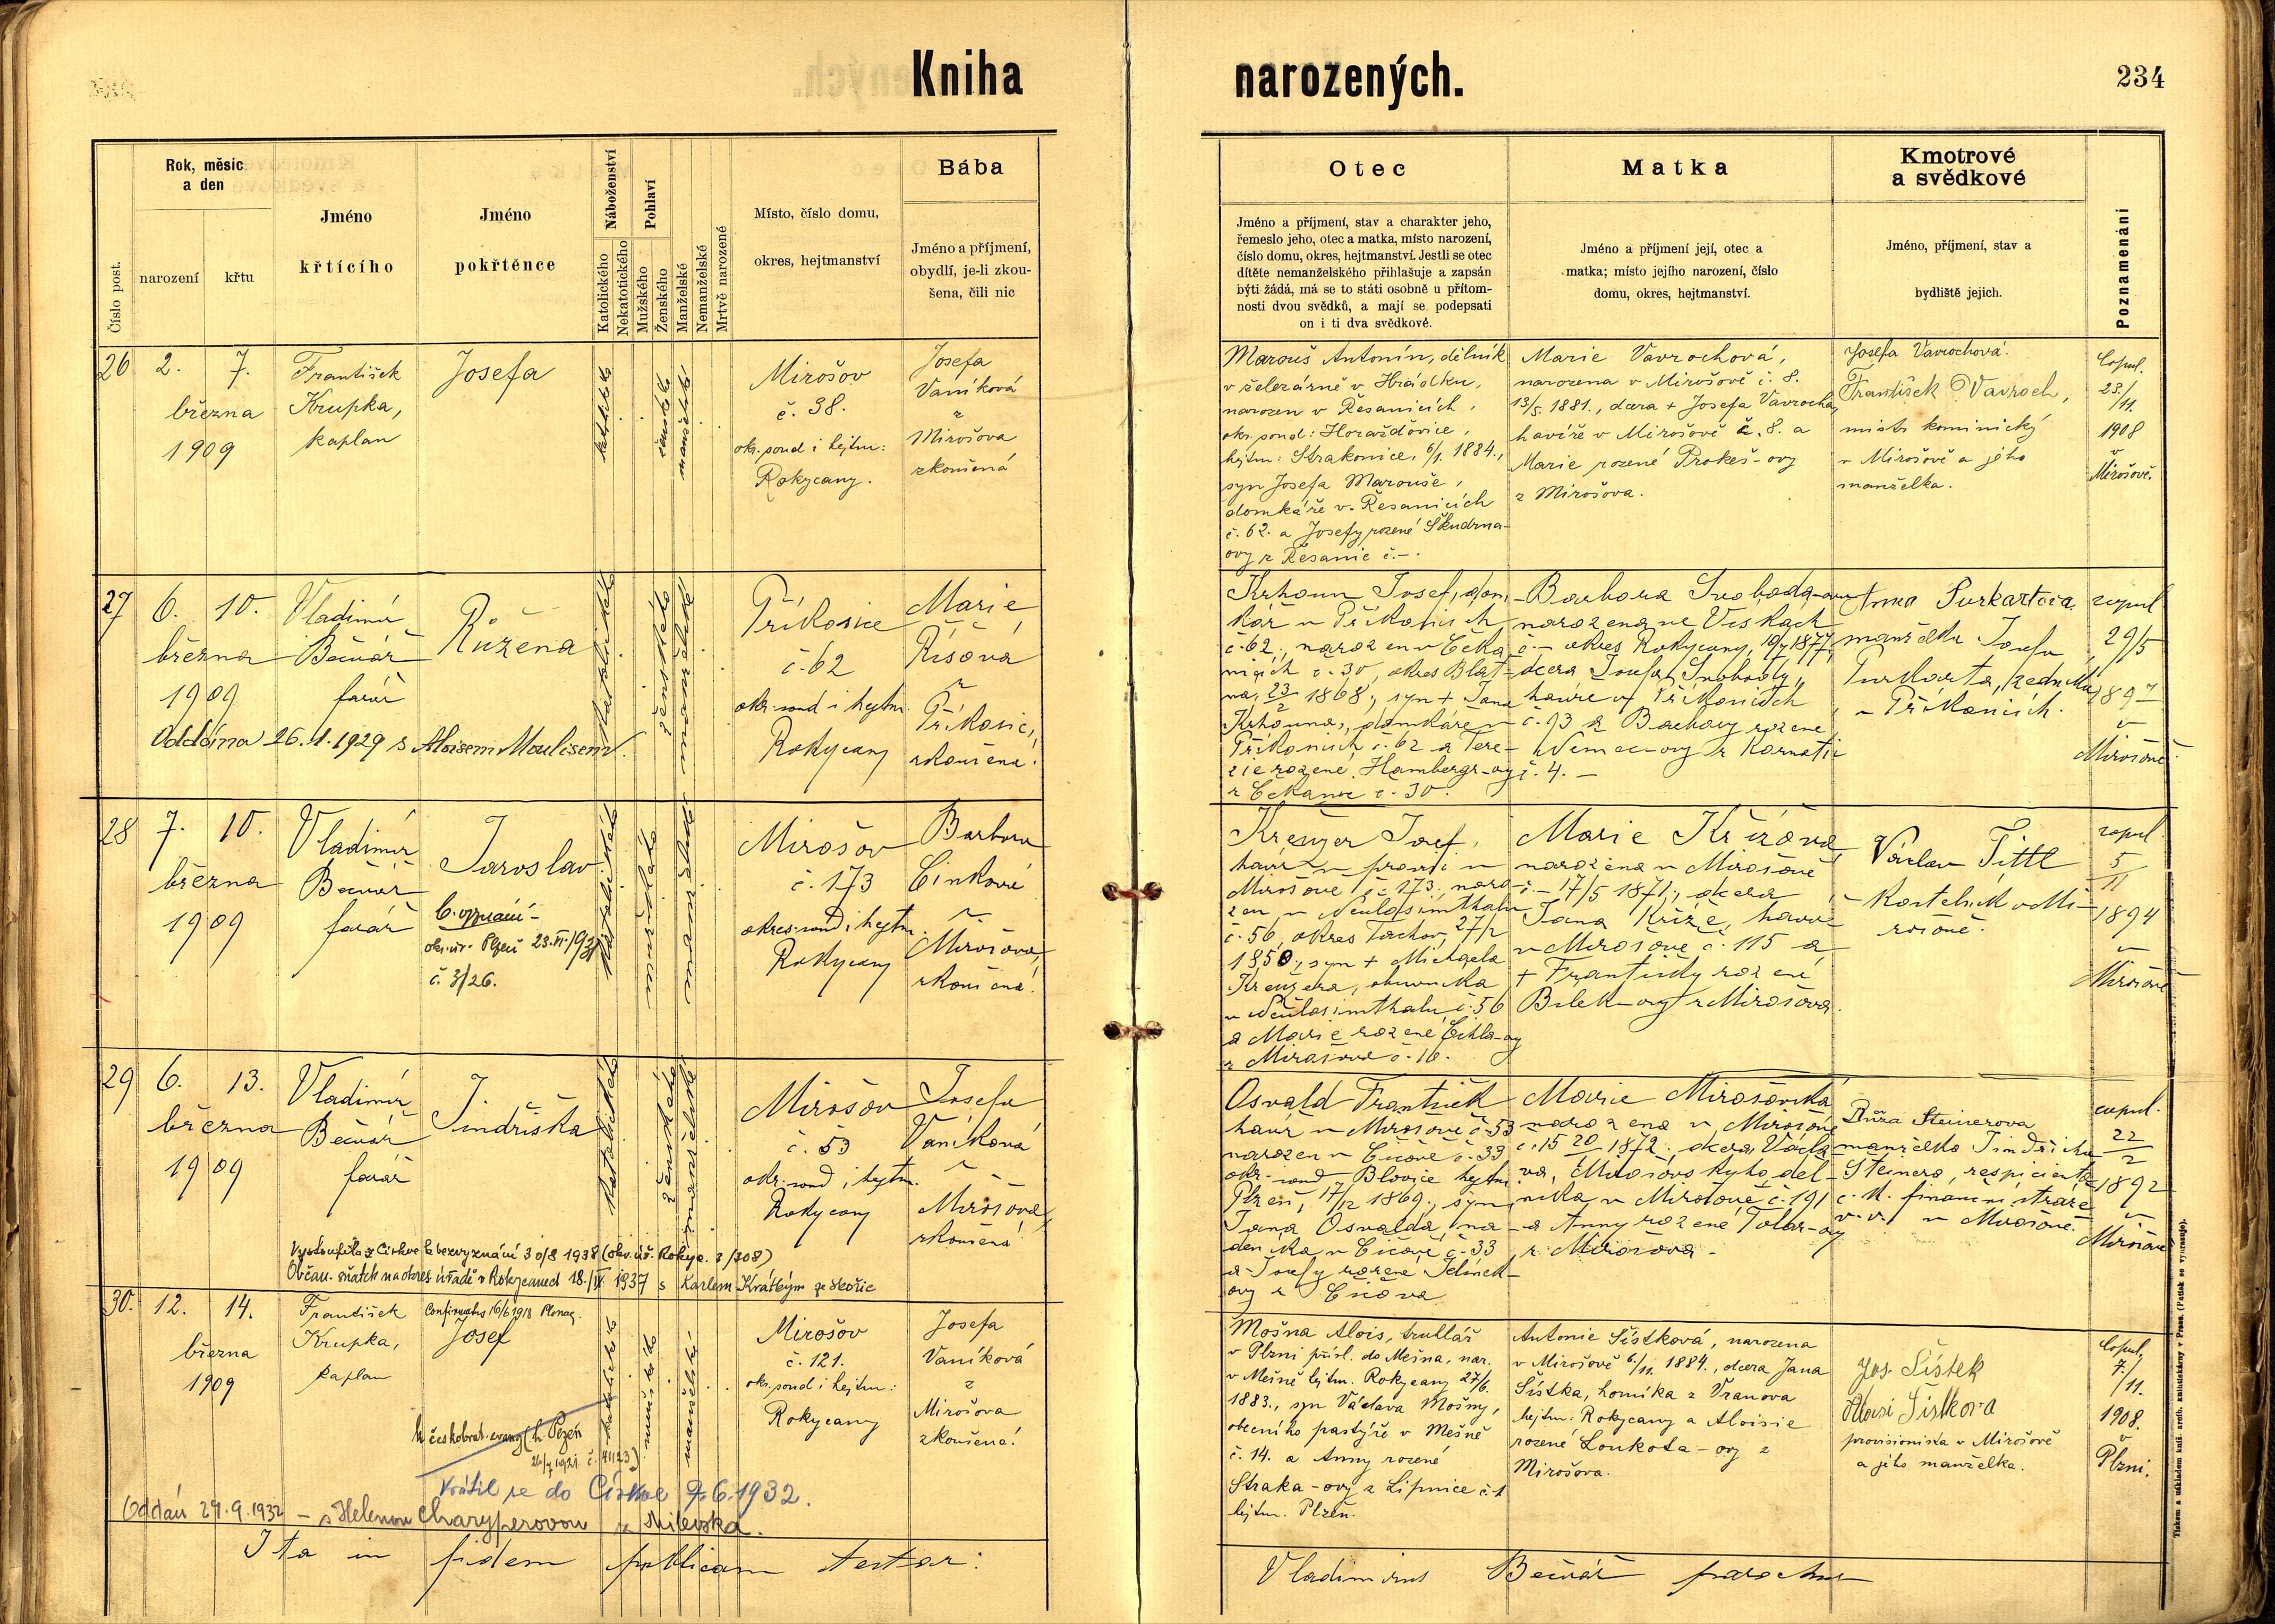 Kniha narozených.
234
Číslo post.
Rok, měsíc
a den
narození
křtu
Jméno
křtícího
Jméno
pokřtěnce
Náboženství
Katolického
Nekatotického
Pohlaví
Mužského
Ženského
Manželské
Nemanželské
Mrtvě narozené
Místo, číslo domu,
okres, hejtmanství
Bába
Jméno a příjmení,
obydlí, je-li zkou-
šena, čili nic
Otec
Jméno a příjmení, stav a charakter jeho,
řemeslo jeho, otec a matka, místo narození,
číslo domu, okres, hejtmanství. Jestli se otec
dítěte nemanželského přihlašuje a zapsán
býti žádá, má se to státi osobně u přítom-
nosti dvou svědků, a mají se podepsati
on i ti dva svědkové.
Matka
Jméno a příjmení její, otec a
matka; místo jejího narození, číslo
domu, okres, hejtmanství.
Kmotrové
a svědkové
Jméno, příjmení, stav a
bydliště jejich.
Poznamenání
26
2. 7.
března
1909
František
Krupka,
kaplan
Josefa
katolické
ženské
manželské
Mirošov
č. 38.
okr. soud i hejtm:
Rokycany.
Josefa
Vaníková
z
Mirošova
zkoušená
Marouš Antonín, dělník
v železárně v Hrádku,
narozen v Řesanicích,
okr. soud: Horažďovice,
hejtm: Strakonice, 6/1. 1884.,
syn Josefa Marouše,
domkáře v Řesanicích
č. 62. a Josefy rozené Škudrna-
ovy z Řesanic č.-.
Marie Vavrochová,
narozena v Mirošově č. 8.
13/5. 1881., dcera + Josefa Vavrocha,
havíře v Mirošově č. 8. a
Marie rozené Prokeš-ovy
z Mirošova.
Josefa Vavrochová.
František Vavroch,
mistr kominický
v Mirošově a jeho
manželka.
Copul.
23/
/11.
1908
v
Mirošově.
27
6. 10.
března
1909
Vladimír
Bečvář
farář
Růžena
Oddána 26.1.1929 s Aloisem Moulisem.
katolického
ženského
manželské
Příkosice
č. 62
okr. soud i hejtm.
Rokycany
Marie
Říšová
z
Příkosic,
zkoušená.
Krhoun Josef, dom-
kář v Příkosicích
č. 62., narozen v Čeka-
nicích č. 30, okres Blat-
na, 23/2 1868., syn + Jana
Krhouna, domkáře v
Příkosicích č. 62 a Tere-
zie rozené Hambergr-ovy
z Čekanic č. 30.
Barbora Svoboda-ova
narozena ve Viskách
č. - okres Rokycany, 1877,
dcera Josefa Svobody,
havíře v Příkosicích
č. 93 a Barbory rozené
Němec-ovy z Kornatic
č. 4. -
Anna Purkartova
manželka Josefa
Purkarta, zedníka
v Příkosicích.
copul
29/5
1897
v
Mirošově.
28
7. 10.
března
1909
Vladimír
Bečvář
farář
Jaroslav
okr. úř. Plzeň 23.VI.1931
č. 3/26.
katolického
mužského
manželské
Mirošov
č. 173
okres. soud i hejtm.
Rokycany
Barbora
Cinková
z
Mirošova,
zkoušená.
Kreuzer Josef,
havíř v provisi v
Mirošově č. 173., naro-
zen v Neulosimthalu
č. 56, okres Tachov, 27/2
1850, syn + Michaela
Kreuzera, obuvníka
v Neulosimthalu č. 56
a Marie rozené
z Mirošova č. 16.
Marie Křížova
narozena v Mirošově
č. - 17/5 1871., dcera
Jana Kříže, havíře
v Mirošově č. 115 a
+ Františky rozené
Bílek-ovy z Mirošova.
Václav Tittl
Kostelník v Mi-
rošově.
copul.
5
11
1894
v
Mirošově
29
6. 13.
března
1909
Vladimír
Bečvář
farář
Jindřiška
katolického
ženského
manželské
Mirošov
č. 53
okr. soud i hejtm.
Rokycany
Josefa
Vaníková
z
Mirošova,
zkoušená
Vystoupila z Církve k bezvyznání 30/8 1938 (okr. úř. Rokyc. 2/308)
Občan. sňatek na okres. úřadě v Rokycanech 18./IX. 1937 s Karlem Krátkým ze Skořic
Osvald František
havíř v Mirošově č. 53
narozen v Čičově č. 33
okr. soud Blovice hejtm.
Plzeň, 17/12 1869., syn
Jana Osvalda, ná-
deníka v Čičově č. 33
a Josefy rozené Jelínek-
ovy z Čičova
Marie Mirošovská
narozena v Mirošově
č. 15 1872. dcera Václa-
va Mirošovského děl-
níka v Mirošově č. 191
a Anny rozené Tolar-ovy
z Mirošova -
Růža Steinerova
manželka Jindřicha
Steinera, respicienta
c. k. finanční stráže
v. v. v Mirošově.
copul.
22
2
1892
v
Mirošově
30.
12. 14.
března
1909
František
Krupka,
kaplan
Confirmatus 16/6 1918 Plznae.
Josef
k českobrat. evang. (h. Plzeň
26/7 1921 č. 41123)
Vrátil se do Církve 9.6.1932.
Oddán 24.9.1932 - s Helenou Charyperovou z Milevska.
katolické
mužské
manželské
Mirošov
č. 121.
okr. soud i hejtm:
Rokycany
Josefa
Vaníková
z
Mirošova
zkoušená.
Mošna Alois, truhlář
v Plzni přísl. do Mešna, nar.
v Mešně hejtm. Rokycany 27/6.
1883., syn Václava Mošny,
obecního pastýře v Mešně
č. 14. a Anny rozené
Straka-ovy z Lipnice č. 1
hejtm. Plzeň.
Antonie Šístková, narozena
v Mirošově 6/11. 1884., dcera Jana
Šístka, horníka z Vranova
hejtm: Rokycany a Aloisie
rozené Loukota-ovy z
Mirošova.
Jos. Šístek
Aloisi Šístkova
provisionista v Mirošově
a jeho manželka.
Copul.
7./
/11.
1908.
v
Plzni.
Ita in fidem publicam testor:
Vladimirus Bečvář parochus